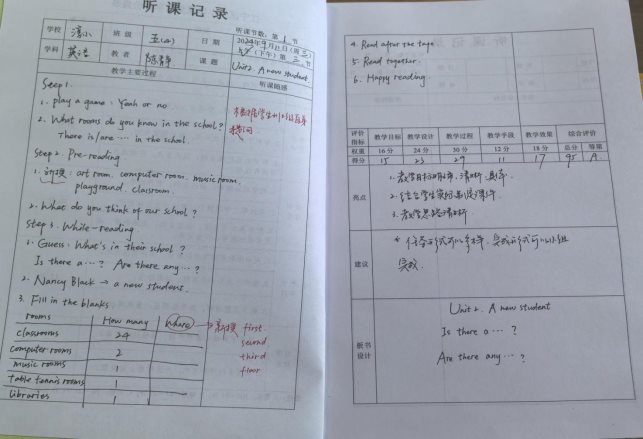 听课记录
听课节数：第 1 节
学校 班级 五(4) 日期 2024年9月11日(周三)
学科 英语 教者 课题 (下午)第三节
Unit 2. A new student
教学主要过程 听课随感
Step 1.
1. play a game: Yeah or no
2. What rooms do you know in the school?
There is/are ... in the school.
Step 2. Pre-reading
1. 新授: art room. computer room. music room.
playground. classroom.
2. What do you think of our school?
Step 3. While-reading
1. Guess: What's in their school?
Is there a ...? Are there any ...?
2. Nancy Black → a new student.
3. Fill in the blanks
rooms How many Where → 新授 first
classrooms 24 second
computer rooms 2 third
music rooms 1 floor
table tennis rooms 1
libraries 1
4. Read after the tape
5. Read together.
6. Happy reading.
评价指标 教学目标 教学设计 教学过程 教学手段 教学效果 综合评价
权重 16分 24分 30分 12分 18分 总分 等第
得分 15 23 29 11 17 95 A
亮点
1. 教学目标明确、清晰、具体.
2. 结合学生实际
3. 教学思路清晰
建议
任务形式可以多样, 完成形式可以小组
完成.
板书设计
Unit 2. A new student
Is there a ...?
Are there any ...?